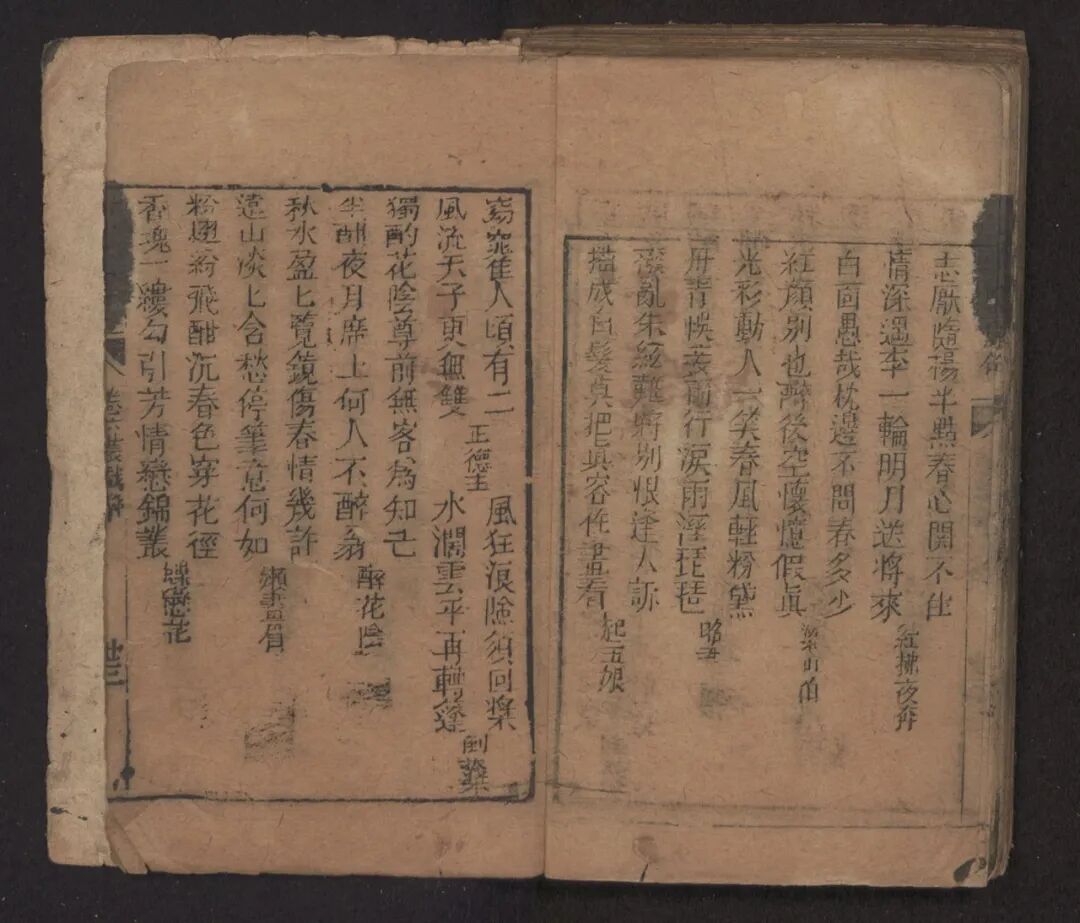 志厭隨楊半㸃春心関不住
情深遇李一輪明月送將來 紅拂夜奔
白面愚哉枕邊不問春多少
紅顏別也醉後空懷憶假真 梁山伯
光彩動人一笑春風輕粉黛
丹青悞妾兩行淚雨溼琵琶 昭君
亂朱絃難將別恨逢人訴
描成白髮莫把真容作畫看 趙五娘
窈窕隹人頃有二
風流天子更無雙 正德王
風狂浪險須回槳
水濶雲平再轉篷 倒槳
獨酌花陰尊前無客為知己
半酣夜月席上何人不醉翁 醉花陰
秋水盈匕覽鏡傷春情幾許
遠山淡匕含愁停筆意何如 懶畫眉
粉翅紛飛酣沉春色穿花徑
香魂一縷勾引芳情戀錦叢 蝶戀花
廿三